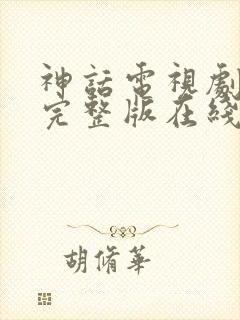 神話電視劇
完整版在綫
胡脩華